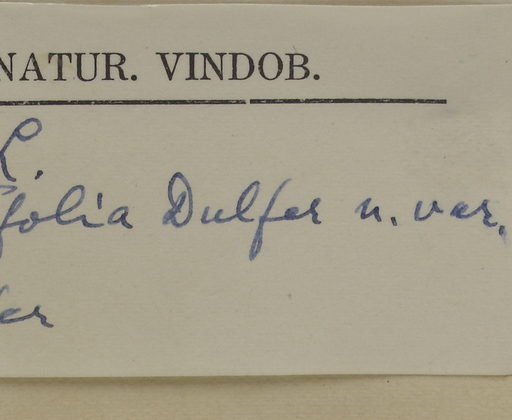 NATUR. VINDOB.
L.
folia Dulfer n. var.
er